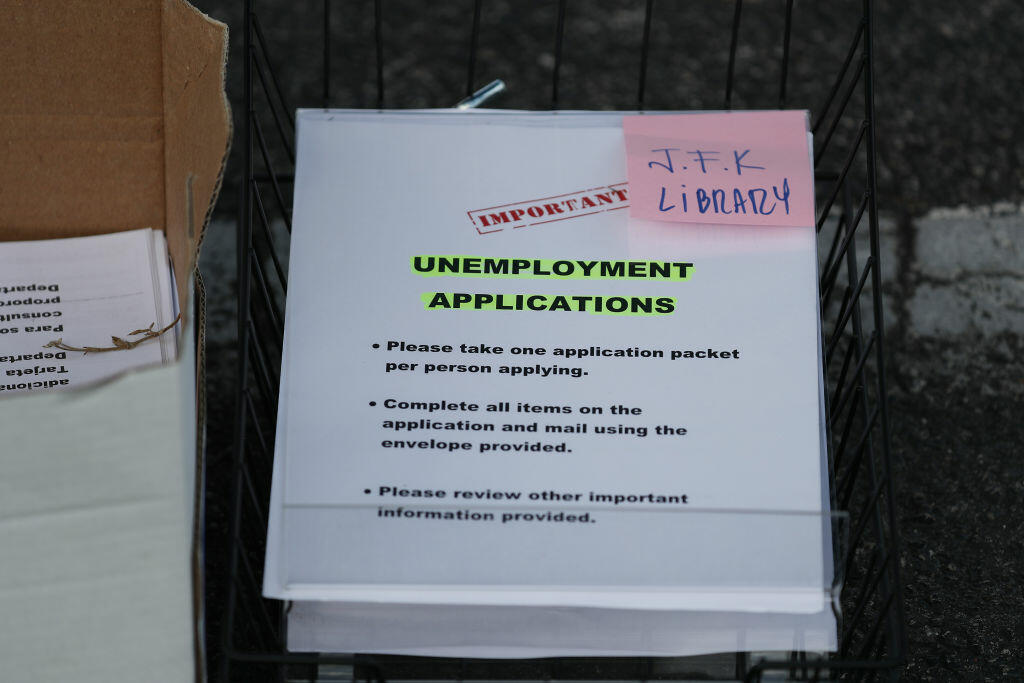 J.F.K
LIBRARY
IMPORTANT
UNEMPLOYMENT
APPLICATIONS
• Please take one application packet
per person applying.
• Complete all items on the
application and mail using the
envelope provided.
• Please review other important
information provided.
adiciona
Tarjeta
Departa
Para so
consult
proporc
Departa